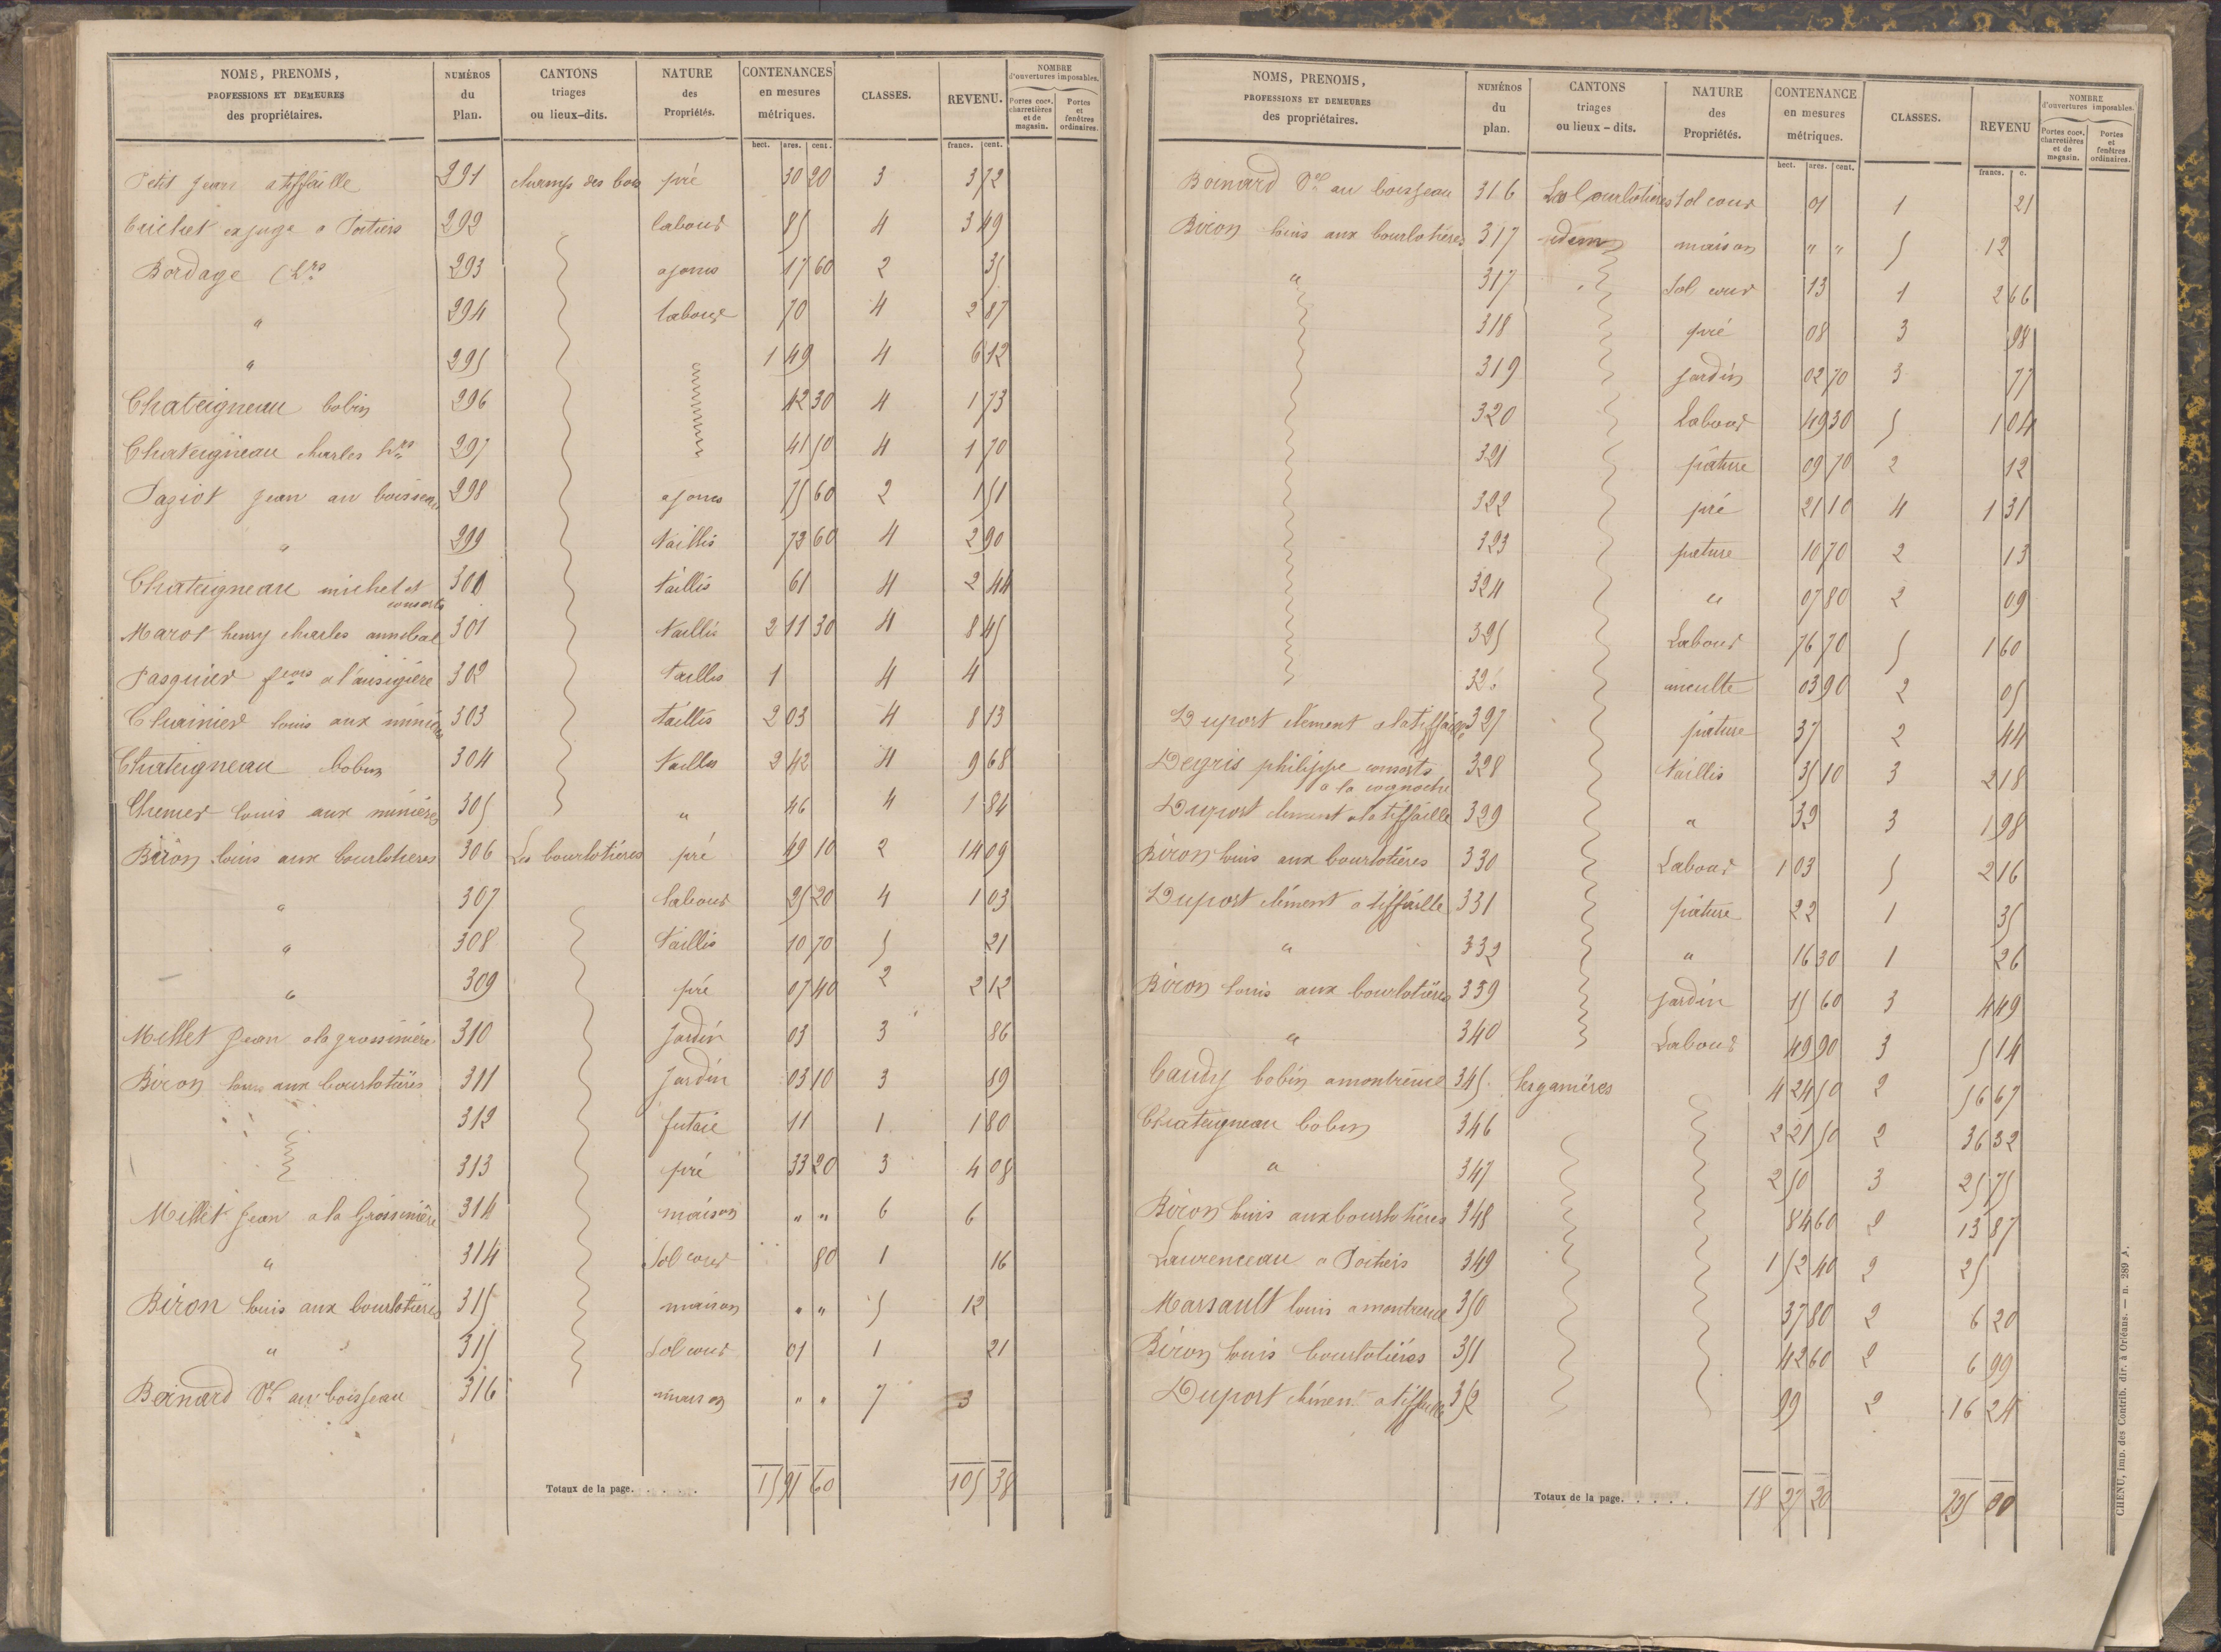 NOMS, PRENOMS, PROFESSIONS ET DEMEURES des propriétaires. | NUMÉROS du Plan. | CANTONS triages ou lieux-dits. | NATURE des Propriétés. | CONTENANCES en mesures métriques. | CLASSES. | REVENU. | NOMBRE d'ouvertures imposables.
Portes coc., charretières et de magasin. | Portes et fenêtres ordinaires.
hect. ares. cent. | francs. cent.
Petit Jean a tiffaille 291 champs des bois pré 30 20 3 3 72
Cuichet ex juge a Poitiers 292 labour 85 4 3 49
Bordage Chrs 293 ajoncs 17 60 2 35
" 294 labour 70 4 2 87
" 295 1 49 4 6 12
Chateigneau bobin 296 42 30 4 1 73
Chateigneau charles 297 41 50 4 1 70
Pagiot Jean au boisseau 298 ajoncs 75 60 2 1 51
" 299 taillis 72 60 4 2 90
Chateigneau michel et consorts 300 taillis 61 4 2 44
Marot henry charles annibal 301 taillis 2 11 30 4 8 45
Pasquier fcois a l'ausigière 302 taillis 1 4 4
Chainier louis aux minières 303 taillis 2 03 4 8 13
Chateigneau bobin 304 taillis 2 42 4 9 68
Chenier louis aux minières 305 " 46 4 1 84
Biron louis aux bourlotieres 306 Les bourlotières pré 49 10 2 14 09
" 307 labour 25 20 4 1 03
" 308 taillis 10 70 5 21
" 309 pré 07 40 2 2 12
Millet Jean a la grossinière 310 Jardin 03 3 86
Biron louis aux bourlotières 311 Jardin 03 10 3 89
312 futaie 11 1 1 80
313 pré 33 20 3 4 08
Millet Jean a la Grossinière 314 maison " " 6 6
" 314 Sol cour 80 1 16
Biron louis aux bourlotières 315 maison " " 5 12
" 315 Sol cour 01 1 21
Boinard Ve au boisseau 316 maison " " 7 3
Totaux de la page..... 15 91 60 105 38
NOMS, PRENOMS, PROFESSIONS ET DEMEURES des propriétaires. | NUMÉROS du plan. | CANTONS triages ou lieux-dits. | NATURE des Propriétés. | CONTENANCE en mesures métriques. | CLASSES. | REVENU | NOMBRE d'ouvertures imposables.
Portes coc., charretières et de magasin. | Portes et fenêtres ordinaires.
hect. ares. cent. | francs. c.
Boinard Ve au boisseau 316 Les bourlotieres Sol cour 01 1 21
Biron louis aux bourlotières 317 idem maison " " 5 12
" 317 Sol cour 13 1 2 66
318 pré 08 3 98
319 Jardin 02 70 3 77
320 Labour 49 30 5 1 04
321 pâture 09 70 2 12
322 pré 21 10 4 1 31
323 pature 10 70 2 13
324 " 07 80 2 09
325 Labour 76 70 5 1 60
326 inculte 03 90 2 05
Duport clément a la tiffaille 327 pature 37 2 44
Degris philippe consorts a la cognoche 328 taillis 35 10 3 2 18
Duport clement a la tiffaille 329 " 32 3 1 98
Biron louis aux bourlotières 330 Labour 1 03 5 2 16
Duport clément a tiffaille 331 pâture 22 1 35
" 332 " 16 30 1 26
Biron louis aux bourlotières 339 Jardin 15 60 3 4 49
" 340 Labour 49 90 3 5 14
Caudy bobin a montreuil 345 4 24 50 2 56 67
Chateigneau bobin 346 2 21 50 2 36 32
" 347 2 50 3 25 75
Biron louis aux bourlotières 348 84 60 2 13 87
Laurenceau a Poitiers 349 1 52 40 2 25
Marsault louis a montreuil 350 37 80 2 6 20
Biron louis bourlotières 351 42 60 2 6 99
Duport clément a tiffaille 352 99 2 16 24
Totaux de la page..... 18 27 20
CHENU, imp. des Contrib. dir. à Orléans. — n. 289 A.